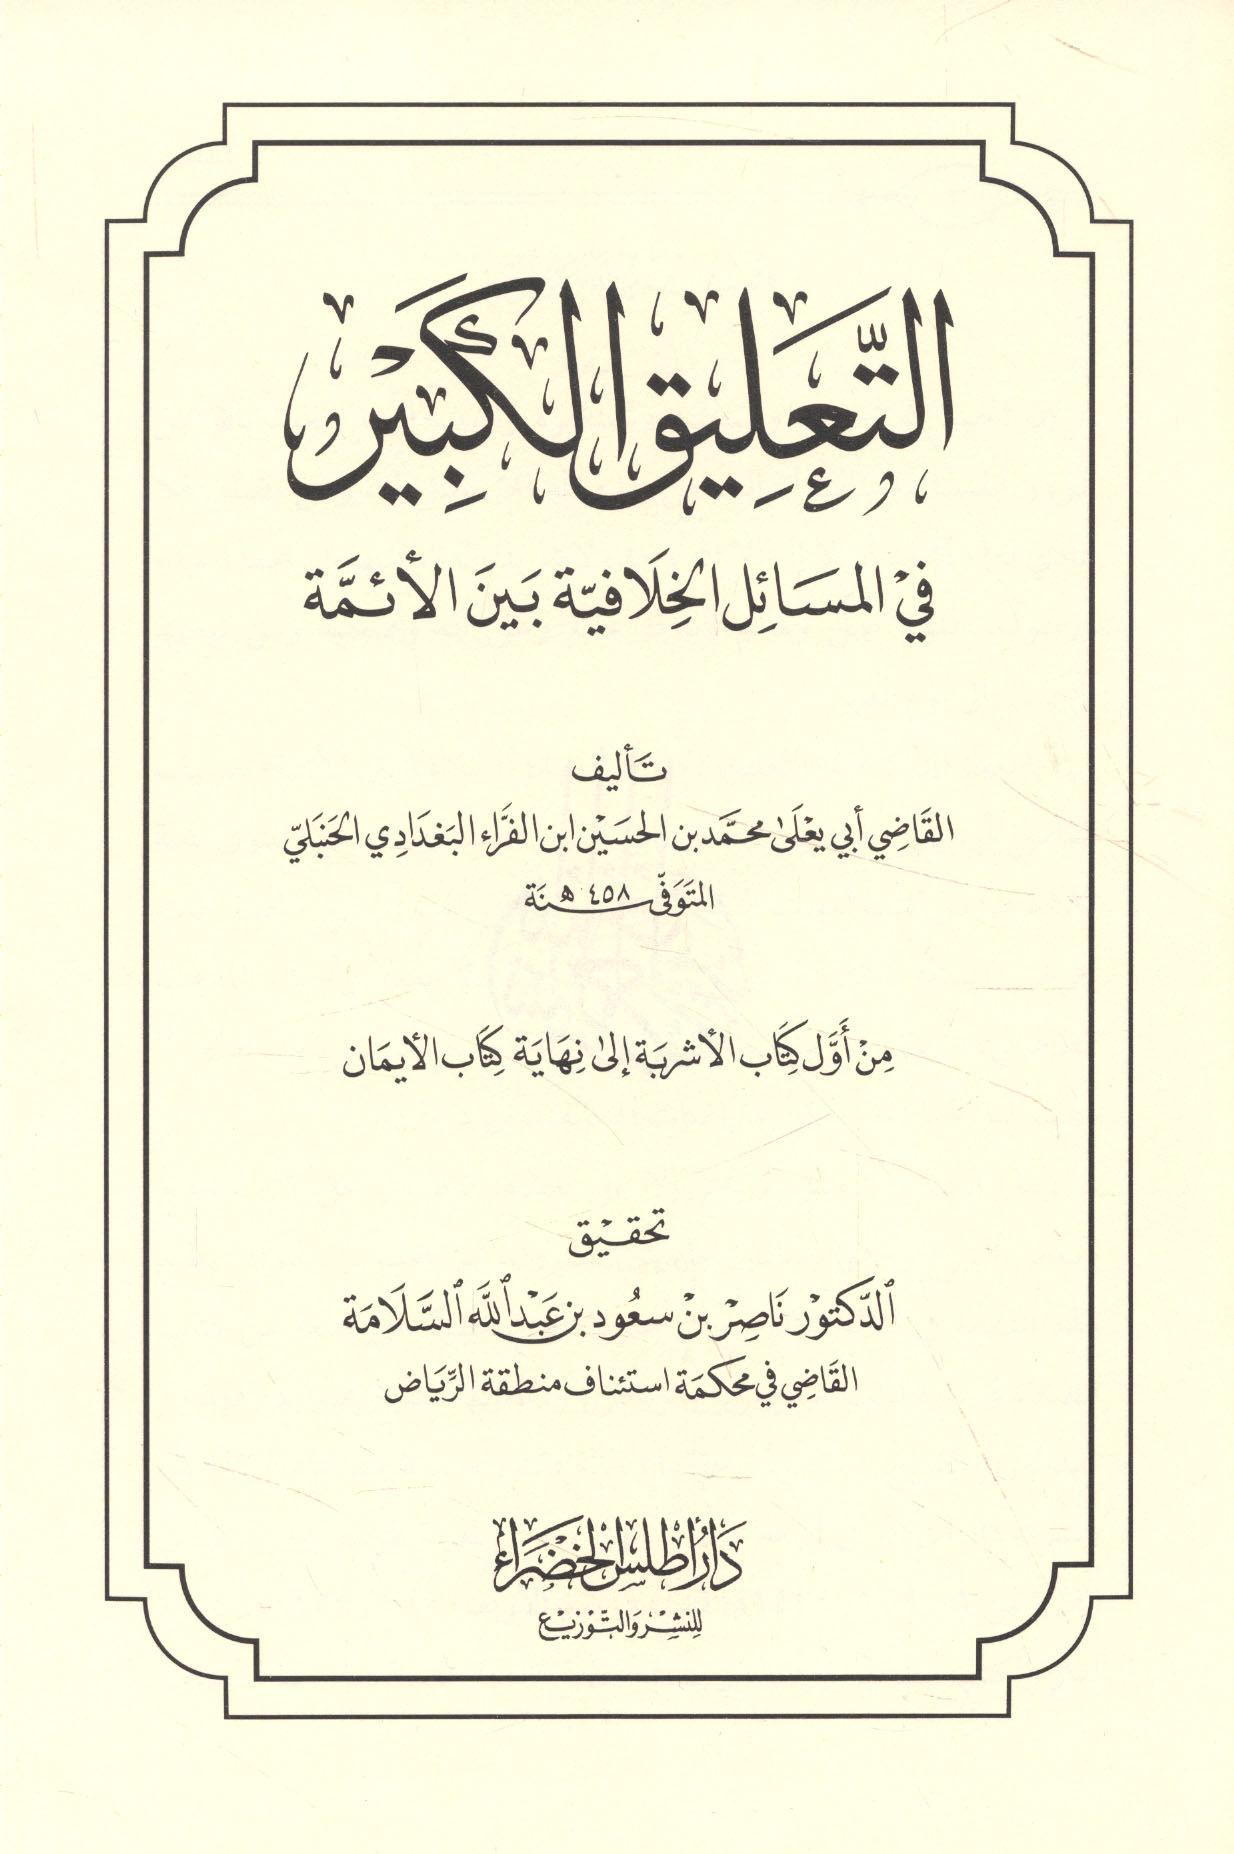 التَّعلِيق الكَبِير
في المسَائِل الخِلَافيّة بَينَ الأئمَّة
تَأليف
القَاضِي أبي يعْلَىٰ محمَّد بن الحسَيْن ابن الفرَّاء البَغدَادِي الحَنبَليّ
المتَوَفّى سنَة ٤٥٨ هـ
مِنْ أَوَّل كتَاب الأشربَة إلىٰ نِهَايَة كتَاب الأيمَان
تحقيْق
الدّكتوْر نَاصِرْ بنْ سعُود بن عَبْد اللَّه السَّلَامَة
القَاضِي في محكمَة استئناف منطقة الرِّيَاض
دَارُ اطلس الخضرَاء
للنشْر وَالتّوْزيْع